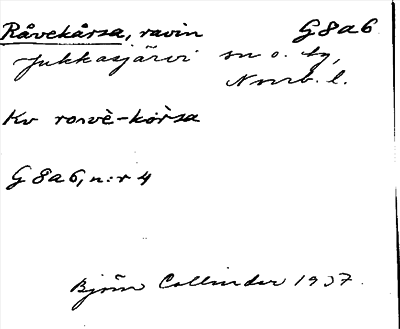 Råvekårsa, ravin G8a6
Jukkasjärvi sn o. tg,
Norrb. l.
Kv rovvè-kòrsa
G8a6, n:r 4
Björn Collinder 1937.